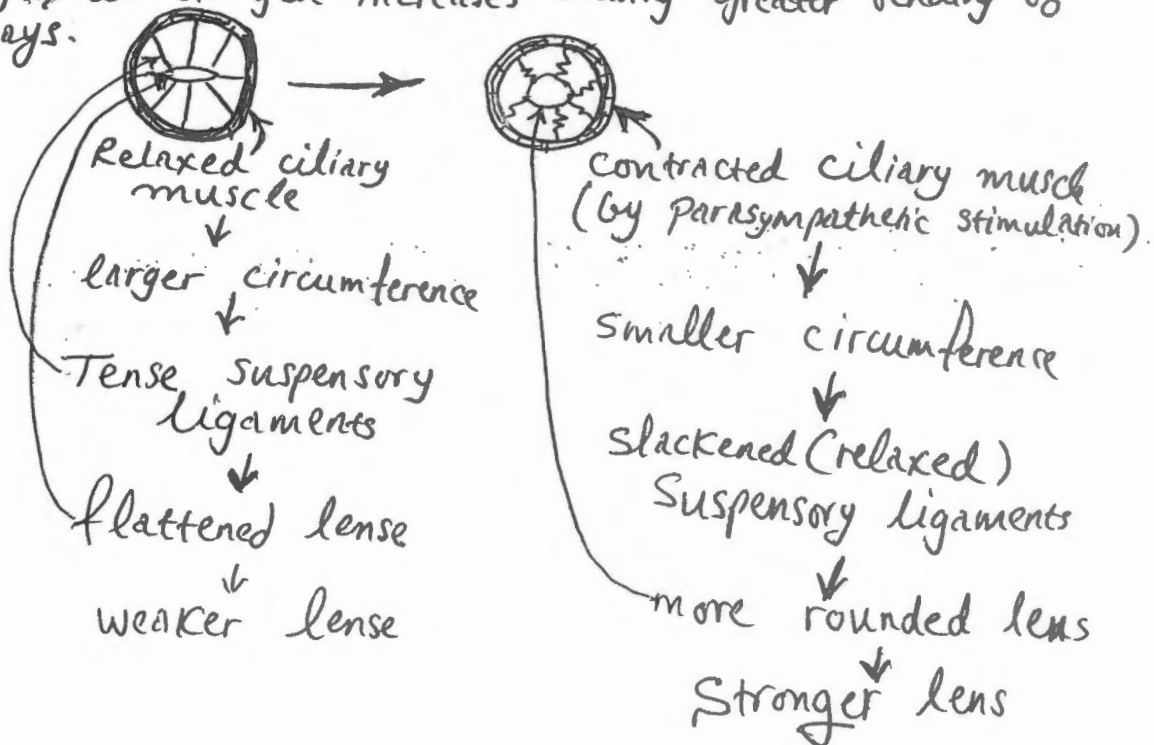 increases
greater
ays.
Relaxed ciliary
muscle
larger circumference
Tense suspensory
ligaments
flattened lense
weaker lense
contracted ciliary muscle
(by parasympathetic stimulation).
smaller circumference
slackened (relaxed)
suspensory ligaments
more rounded lens
Stronger lens